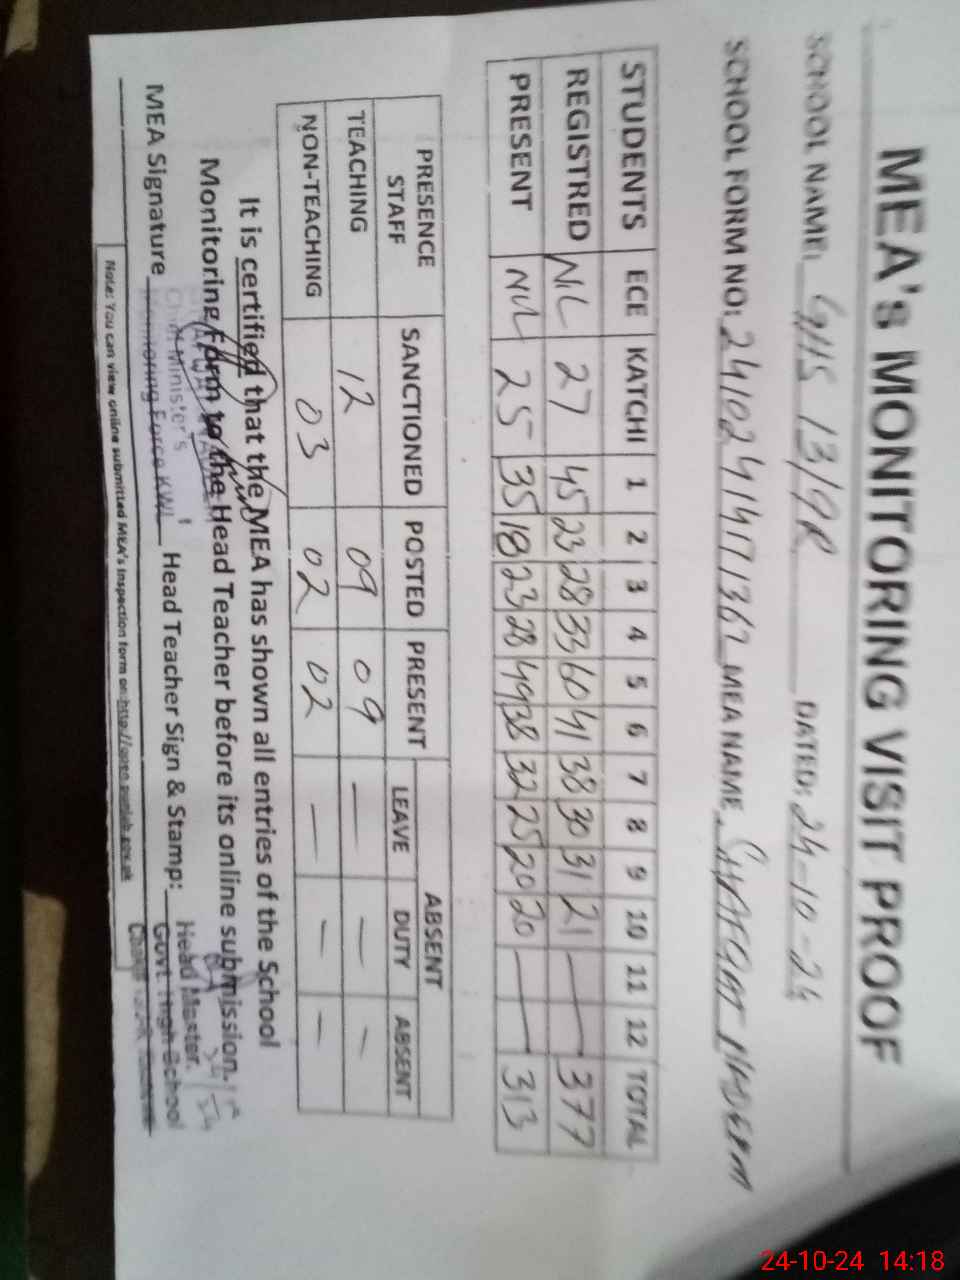 MEA's MONITORING VISIT PROOF
SCHOOL NAME: GHS 13/9R DATED: 24-10-24
SCHOOL FORM NO: MEA NAME
STUDENTS ECE KATCHI 1 2 3 4 5 6 7 8 9 10 11 12 TOTAL
REGISTRED NIL 27 45 23 28 33 60 41 38 30 31 21 — 377
PRESENT NIL 25 35 18 23 28 49 38 32 25 20 20 — 313
PRESENCE STAFF SANCTIONED POSTED PRESENT ABSENT
LEAVE DUTY ABSENT
TEACHING 12 09 09 — — —
NON-TEACHING 03 02 02 — — —
It is certified that the MEA has shown all entries of the School
Monitoring Form to the Head Teacher before its online submission.
MEA Signature Head Teacher Sign & Stamp:
Chief Minister's
Monitoring Force KWL
Head Master.
Govt. High School
Note: You can view online submitted MEA's inspection form on http://open.punjab.gov.pk
24-10-24 14:18